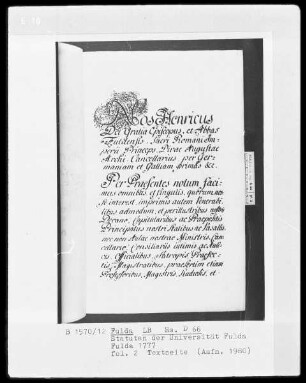 Nos Henricus
Dei Gratia Episcopus, et Abbas
Fuldensis, Sacri Romani Im-
perii Princeps, Divae Augustae
Archi-Cancellarius per Ger-
maniam et Galliam primas &c.
Per Praesentes notum faci-
mus omnibus et singulis, quorum
interest, imprimis autem Venerabi-
libus admodum, et perillustribus nostris
Decano, Capitularibus ac Praepositis
Principalibus nostris Statibus ac Vasallis
nec non Aulae nostrae Ministris, Can-
cellario, Consiliariis intimis ac Auli-
cis, Officialibus, Satrapiis Praefec-
tis, Magistratibus, praesertim etiam
Professoribus, Magistris, Studiosis, et
B 1570/12 Fulda LB Hs. D 66
Statuten der Universität Fulda
Fulda 1777
fol. 2 Textseite (Aufn. 1980)